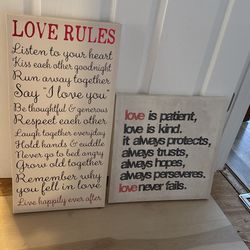 LOVE RULES
Listen to your heart
Kiss each other goodnight
Run away together
Say "I love you"
Be thoughtful & generous
Respect each other
Laugh together everyday
Hold hands & cuddle
Never go to bed angry
Grow old together
Remember why
you fell in love
Live happily ever after
love is patient,
love is kind.
it always protects,
always trusts,
always hopes,
always perseveres.
love never fails.